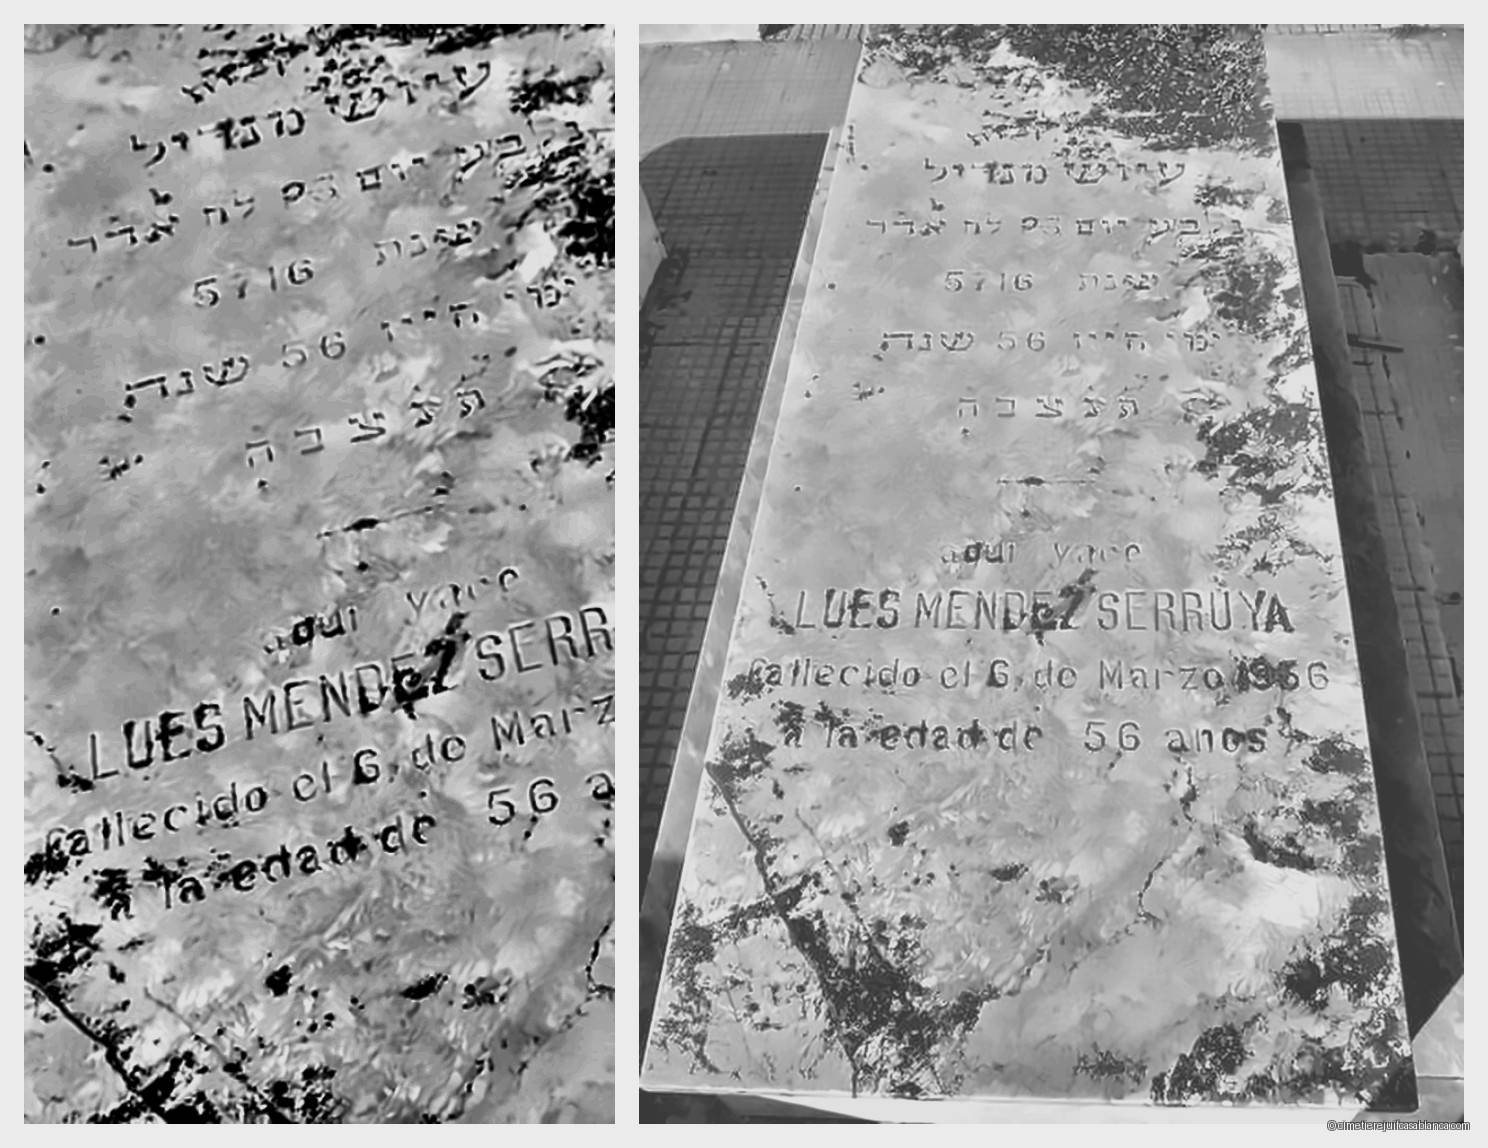 עיוש מנדיל
נלבע יום 23 לח אדר
שנת 5716
ימי חייו 56 שנה
תנצבה
aqui yace
LUES MENDEZ SERR
fallecido el 6, de Marz
a la edad de 56 a
עיוש מנדיל
נלבע יום 23 לח אדר
שנת 5716
ימי חייו 56 שנה
תנצבה
aqui yace
LUES MENDEZ SERRUYA
fallecido el 6, de Marzo 1956
a la edad de 56 anos
©cimetierejuifcasablanca.com